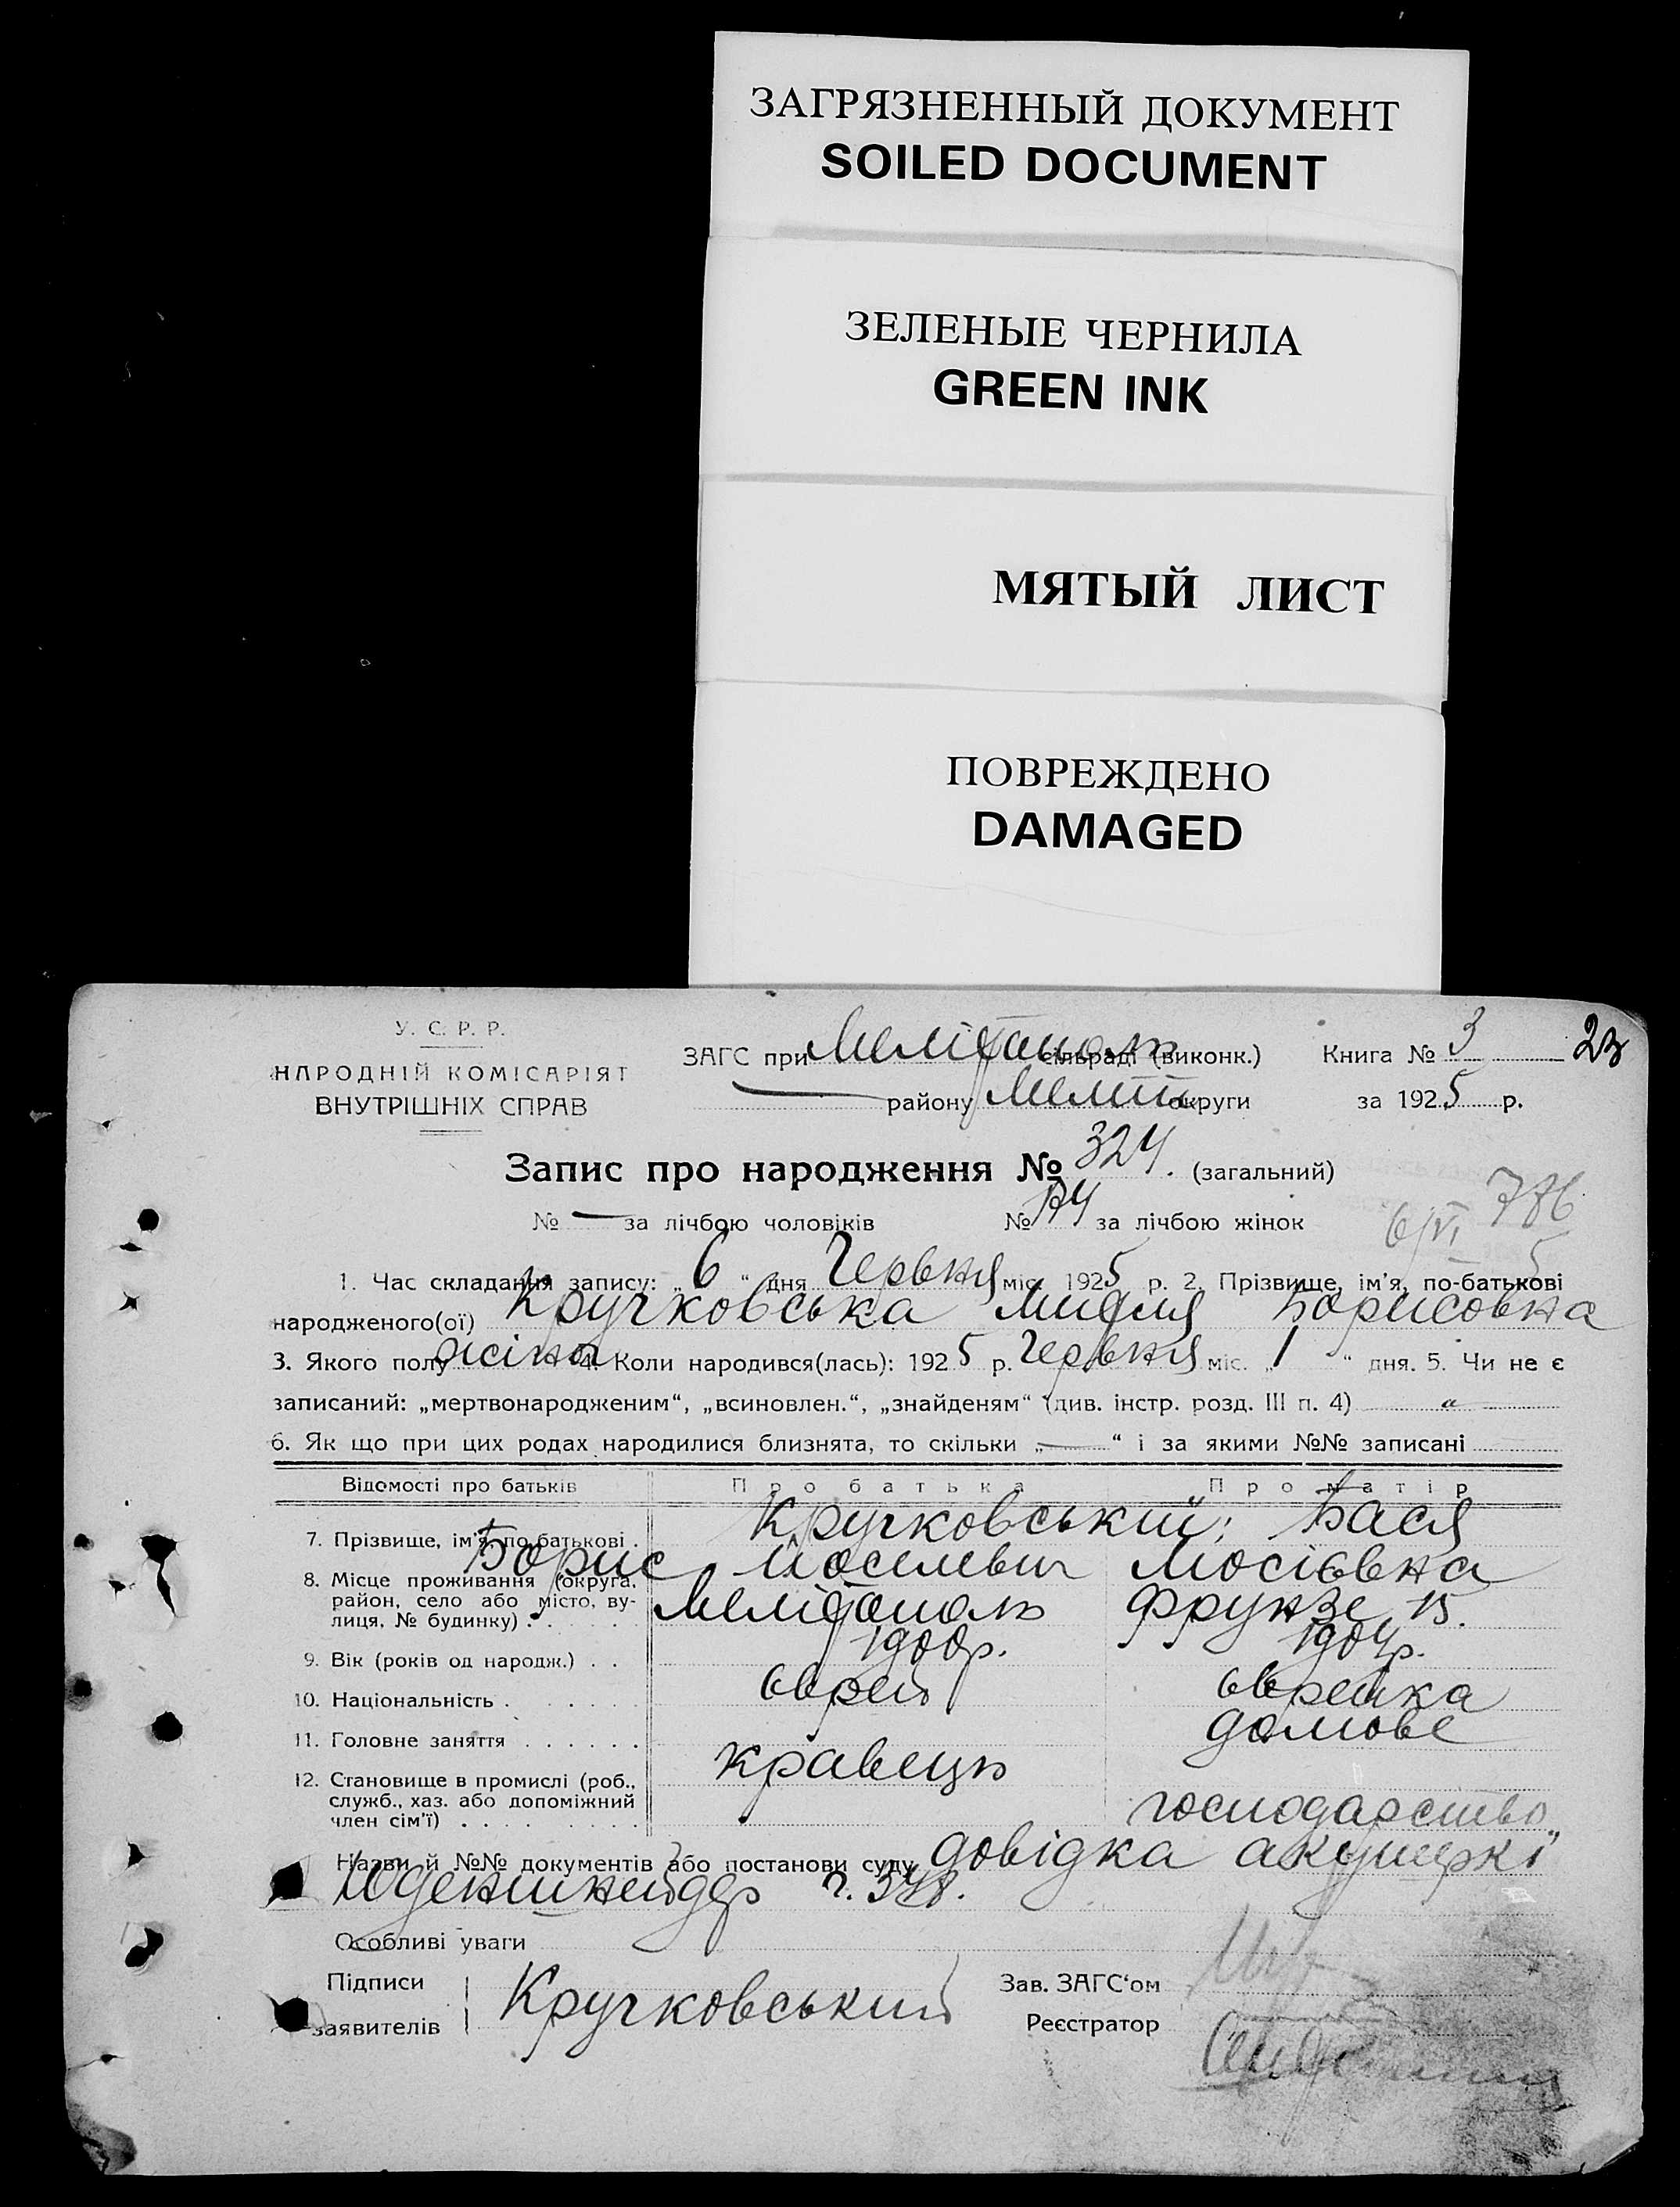 ЗАГРЯЗНЕННЫЙ ДОКУМЕНТ
SOILED DOCUMENT
ЗЕЛЕНЫЕ ЧЕРНИЛА
GREEN INK
МЯТЫЙ ЛИСТ
ПОВРЕЖДЕНО
DAMAGED
У. С. Р. Р.
НАРОДНІЙ КОМІСАРІЯТ
ВНУТРІШНІХ СПРАВ
ЗАГС при Мелітополь сільраді (виконк.) Книга № 3 23
району Меліт округи за 1925 р.
Запис про народження № 324. (загальний)
№ — за лічбою чоловіків № за лічбою жінок
6/VI
1. Час складання запису: „6“ дня Червня міс. 1925 р. 2. Прізвище, ім’я, по-батькові
народженого(ої) Кручковська Борисовна
3. Якого полу жіноч 4. Коли народився(лась): 1925 р. Червня міс. „1“ дня. 5. Чи не є
записаний: „мертвонародженим“, „всиновлен.“, „знайденям“ (див. інстр. розд. III п. 4)
6. Як що при цих родах народилися близнята, то скільки „—“ і за якими №№ записані
Відомості про батьків Про батька Про матір
7. Прізвище, ім’я, по-батькові . Кручковський; Бася
Борис Йосилевич Мосієвна
8. Місце проживання (округа,
район, село або місто, ву-
лиця, № будинку) . Мелітополь Фрунзе 15.
9. Вік (років од народж.) . . 1900р. 1904р.
10. Національність . єврей єврейка
11. Головне заняття . кравець домове
12. Становище в промислі (роб.,
служб., хаз. або допоміжний
член сім’ї) . господарство
Назви й №№ документів або постанови суду довідка акушеркі
ч.
Особливі уваги
Підписи
заявителів Кручковський
Зав. ЗАГС‘ом
Реєстратор